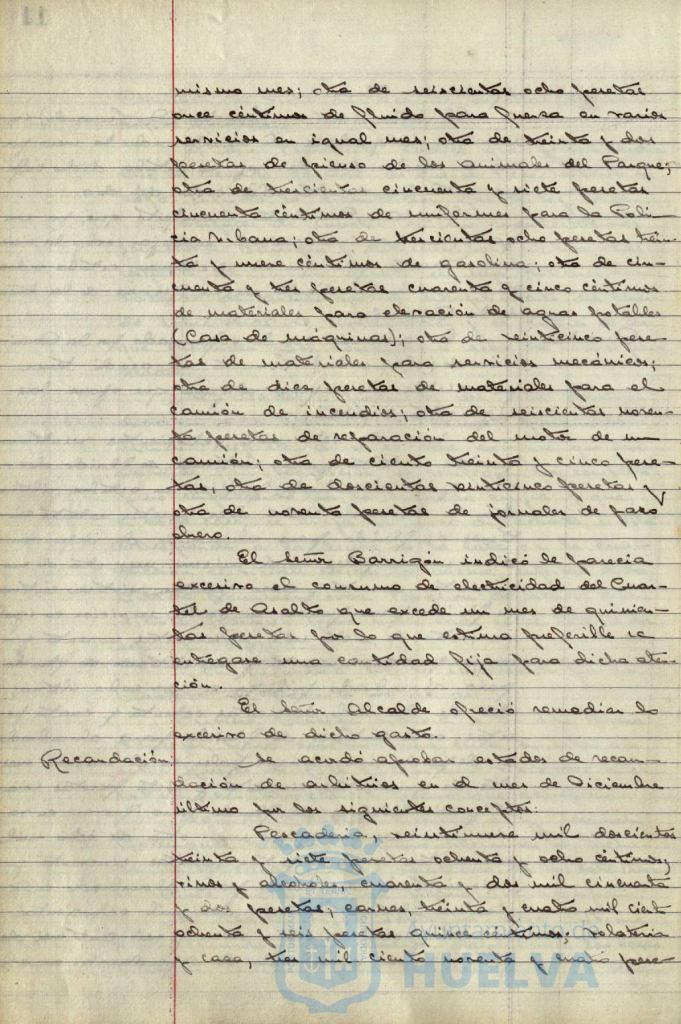 mismo mes; otra de seiscientas ocho pesetas
once céntimos de fluido para fuerza en varios
servicios en igual mes; otra de treinta y dos
pesetas de pienso de los animales del Parque;
otra de trescientas cincuenta y siete pesetas
cincuenta céntimos de uniformes para la Poli-
cia Urbana; otra de trescientas ocho pesetas trein-
ta y nueve céntimos de gasolina; otra de cin-
cuenta y tres pesetas cuarenta y cinco céntimos
de materiales para elevación de aguas potables
(Casa de máquinas); otra de veinticinco pese-
tas de materiales para servicios mecánicos;
otra de diez pesetas de materiales para el
camión de incendios; otra de seiscientas noven-
ta pesetas de reparación del motor de un
camión; otra de ciento treinta y cinco pese-
tas, otra de doscientas veinticinco pesetas y
otra de noventa pesetas de jornales de paro
obrero.
El Señor Barrigón indicó le parecia
excesivo el consumo de electricidad del Cuar-
tel de Asalto que excede un mes de quinien-
tas pesetas por lo que estima preferible se
entregase una cantidad fija para dicha aten-
ción.
El Señor Alcalde ofreció remediar lo
excesivo de dicho gasto.
Recaudación: Se acordó aprobar estados de recau-
dación de arbitrios en el mes de Diciembre
último por los siguientes conceptos:
Pescaderia, veintinueve mil doscientas
treinta y siete pesetas ochenta y ocho céntimos;
vinos y alcoholes, cuarenta y dos mil cincuenta
y dos pesetas; carnes, treinta y cuatro mil cient
ochenta y seis pesetas quince céntimos; volateria
y caza, tres mil ciento noventa y cuatro pese-
HUELVA